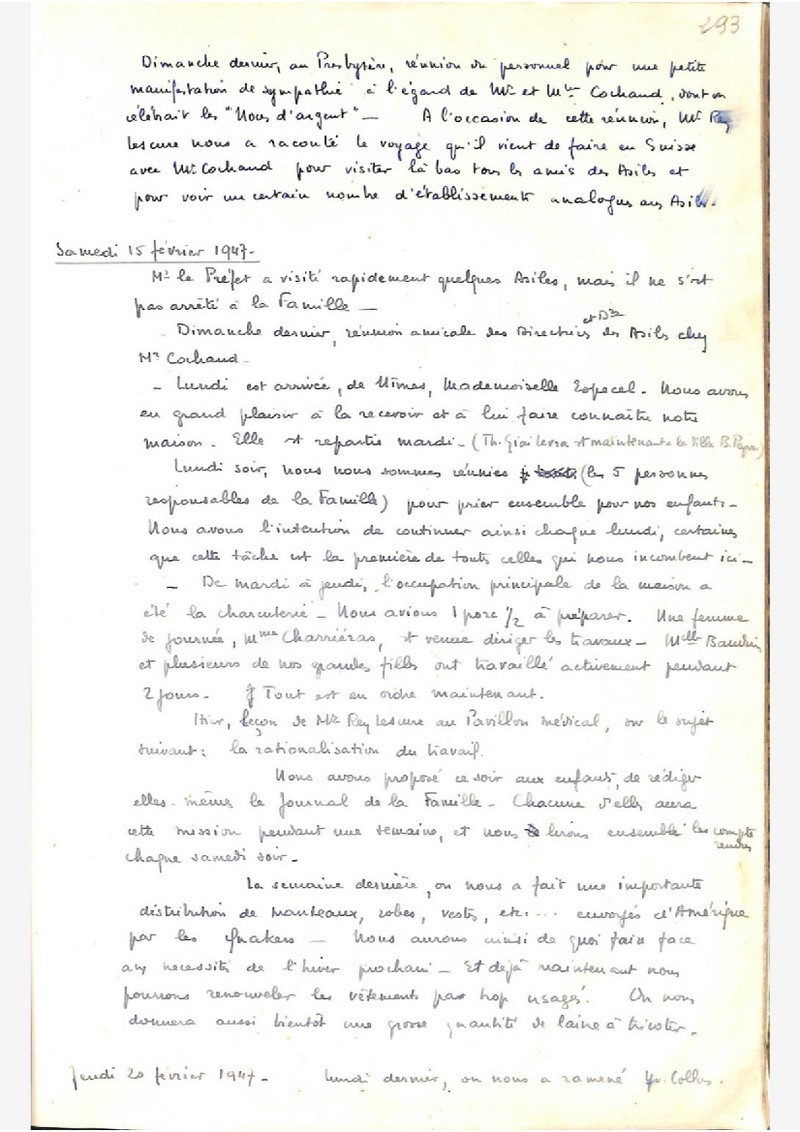 293
Dimanche dernier, au Presbytère, réunion du personnel pour une petite
manifestation de sympathie à l'égard de Mr et Mme Cochand, dont on
célébrait les "Noces d'argent" — A l'occasion de cette réunion, Mr Rey
Lescure nous a raconté le voyage qu'il vient de faire en Suisse
avec Mr Cochand pour visiter là bas tous les amis des Asiles et
pour voir un certain nombre d'établissements analogues aux Asiles.
Samedi 15 février 1947-
Mr le Préfet a visité rapidement quelques Asiles, mais il ne s'est
pas arrêté à la Famille —
Dimanche dernier, réunion amicale des Directrices et Drs des Asiles chez
Mr Cochand-
- Lundi est arrivée, de Nîmes, Mademoiselle Especel. Nous avons
eu grand plaisir à la recevoir et à lui faire connaître notre
maison - Elle est repartie mardi - (Th. est maintenant à la Villa B.
Lundi soir, nous nous sommes réunies (les 5 personnes
responsables de la Famille) pour prier ensemble pour nos enfants -
Nous avons l'intention de continuer ainsi chaque lundi, certaines
que cette tâche est la première de toutes celles qui nous incombent ici -
- De mardi à jeudi, l'occupation principale de la maison a
été la charcuterie - Nous avions 1 porc 1/2 à préparer. Une femme
de journée, Mme Charriéras, est venue diriger les travaux - Melle
et plusieurs de nos grandes filles ont travaillé activement pendant
2 jours - Tout est en ordre maintenant.
Hier, leçon de Mr Rey Lescure au Pavillon médical, sur le sujet
suivant : la rationalisation du travail.
Nous avons proposé ce soir aux enfants, de rédiger
elles-mêmes le Journal de la Famille - Chacune d'elles aura
cette mission pendant une semaine, et nous lirons ensemble les compte
rendus
chaque samedi soir -
La semaine dernière, on nous a fait une importante
distribution de manteaux, robes, vestes, etc... envoyés d'Amérique
par les Quakers - Nous aurons ainsi de quoi faire face
aux nécessités de l'hiver prochain - Et déjà maintenant nous
pourrons renouveler les vêtements par trop usagés. On nous
donnera aussi bientôt une grosse quantité de laine à tricoter.
Jeudi 20 février 1947 - Lundi dernier, on nous a ramené Yv.